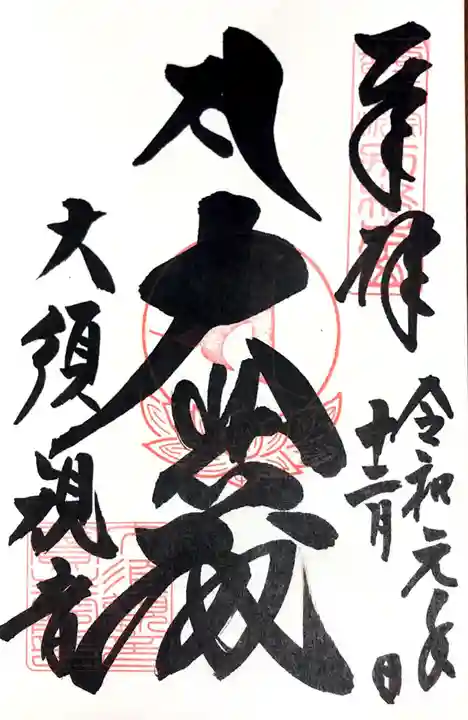 奉拝
令和元年
十二月
日
大悲殿
大須観音